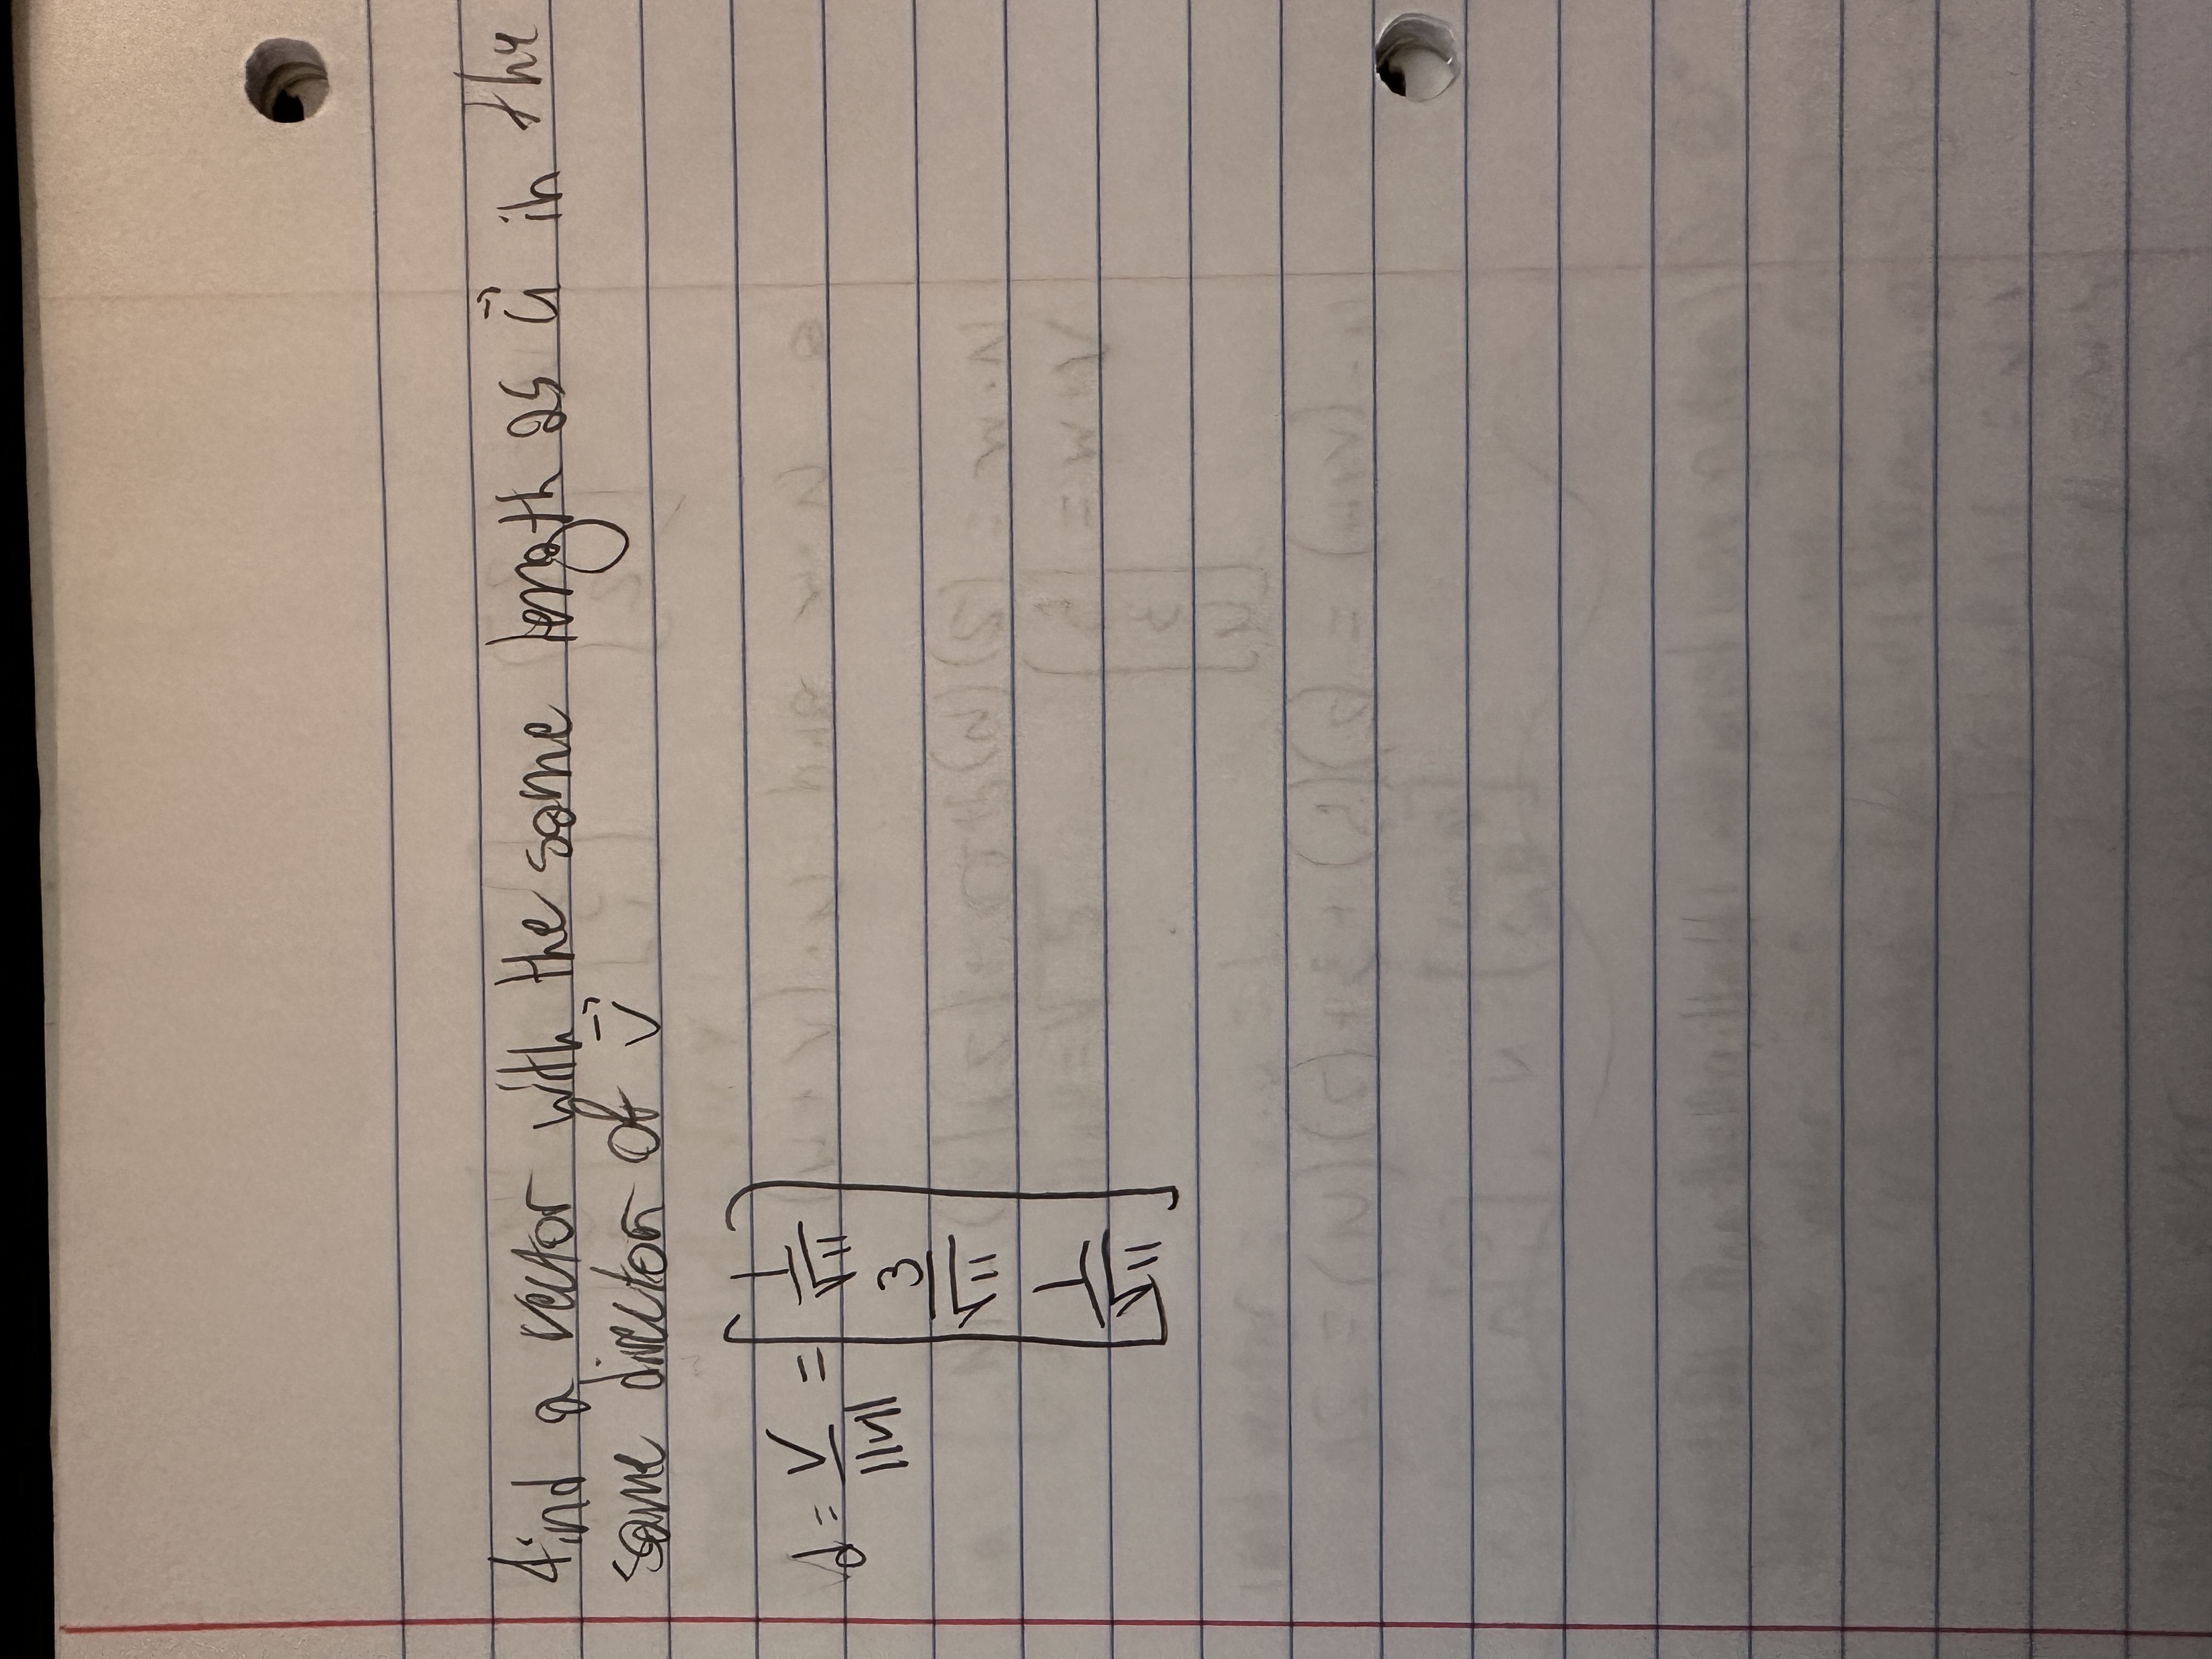 find a vector with the same length as u⃗ in the
same direction of v⃗
d = V/||V|| = [1/√11
3/√11
1/√11]